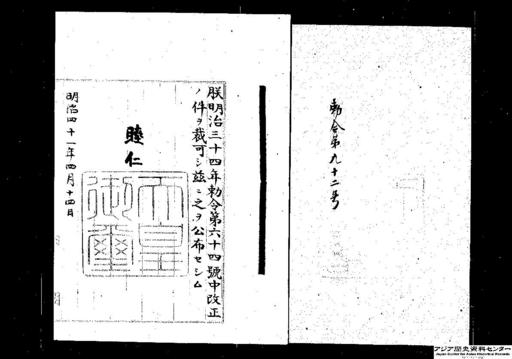 勅令第九十二号
朕明治三十四年勅令第六十四號中改正
ノ件ヲ裁可シ茲ニ之ヲ公布セシム
睦仁
天皇
御璽
明治四十一年四月十四日
アジア歴史資料センター
Japan Center for Asian Historical Records